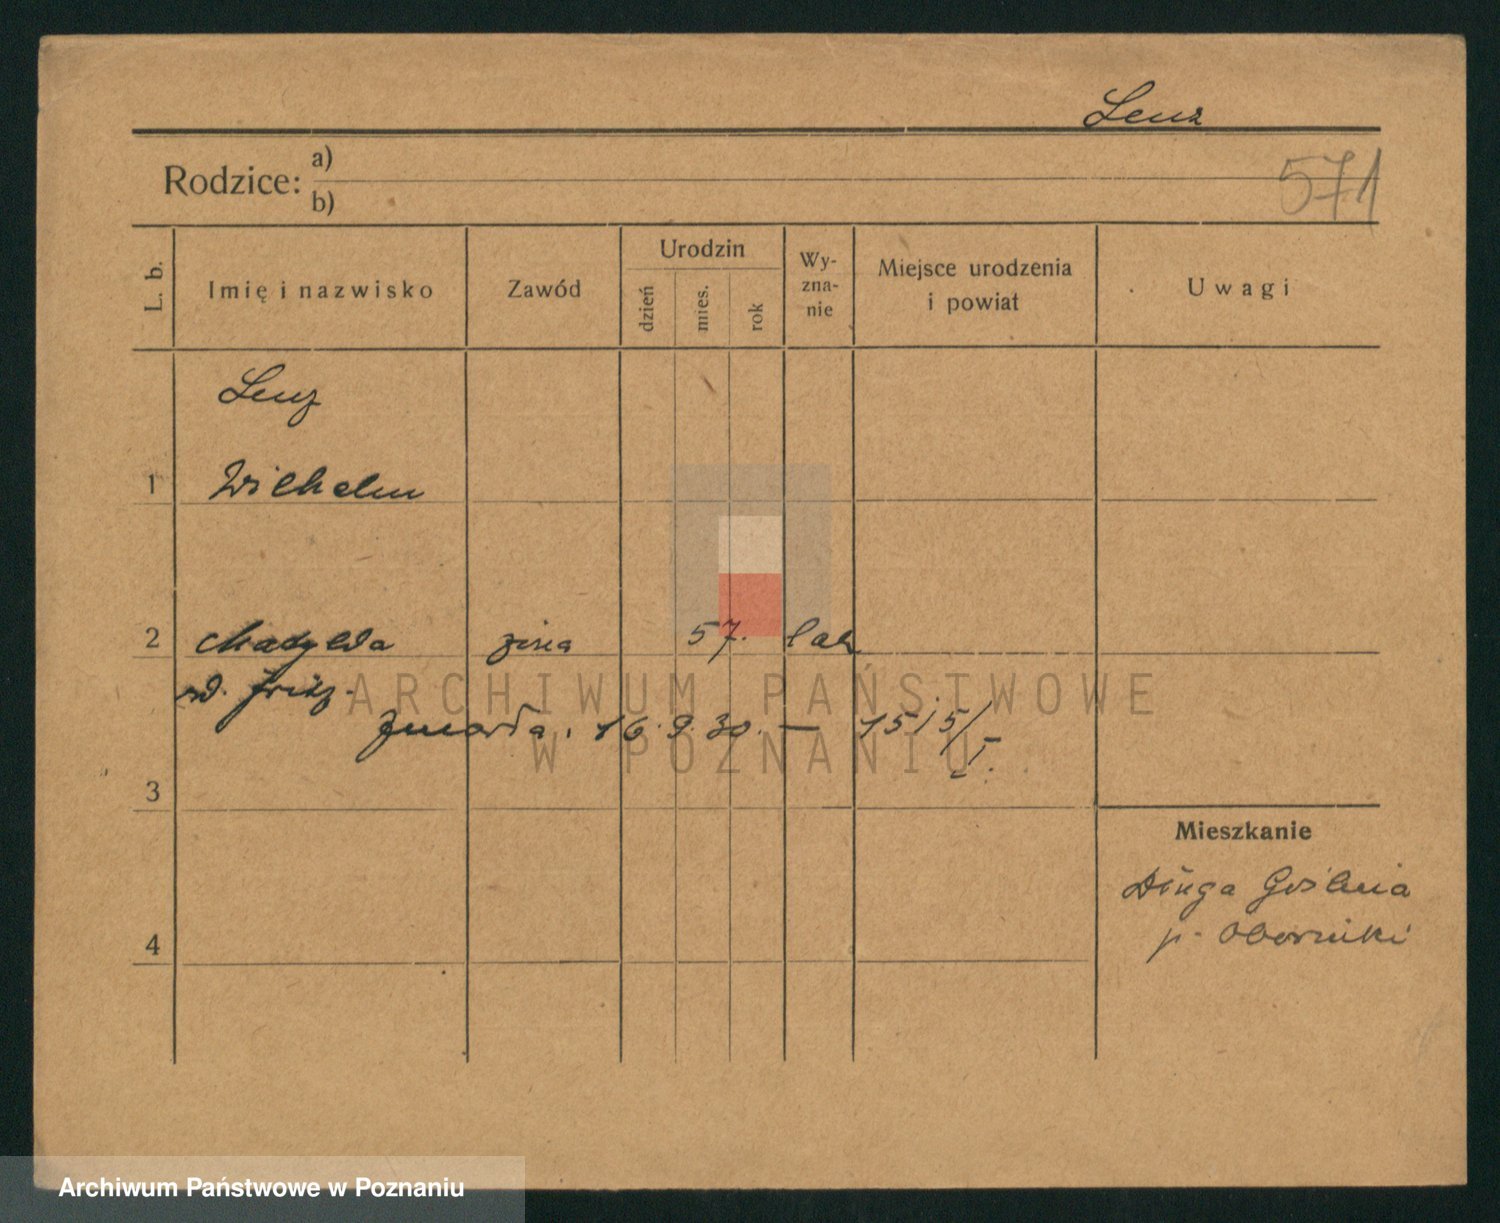 Lenz
Rodzice: a)
b)
571
L. b.
Imię i nazwisko
Zawód
Urodzin
dzień
mies.
rok
Wy-
zna-
nie
Miejsce urodzenia
i powiat
Uwagi
Lenz
1 Wilhelm
2 Matylda żona 57. lat
zmarła, 16.9.30. —
3
Mieszkanie
Długa Goślina
p. Oborniki
4
ARCHIWUM PAŃSTWOWE
W POZNANIU
Archiwum Państwowe w Poznaniu